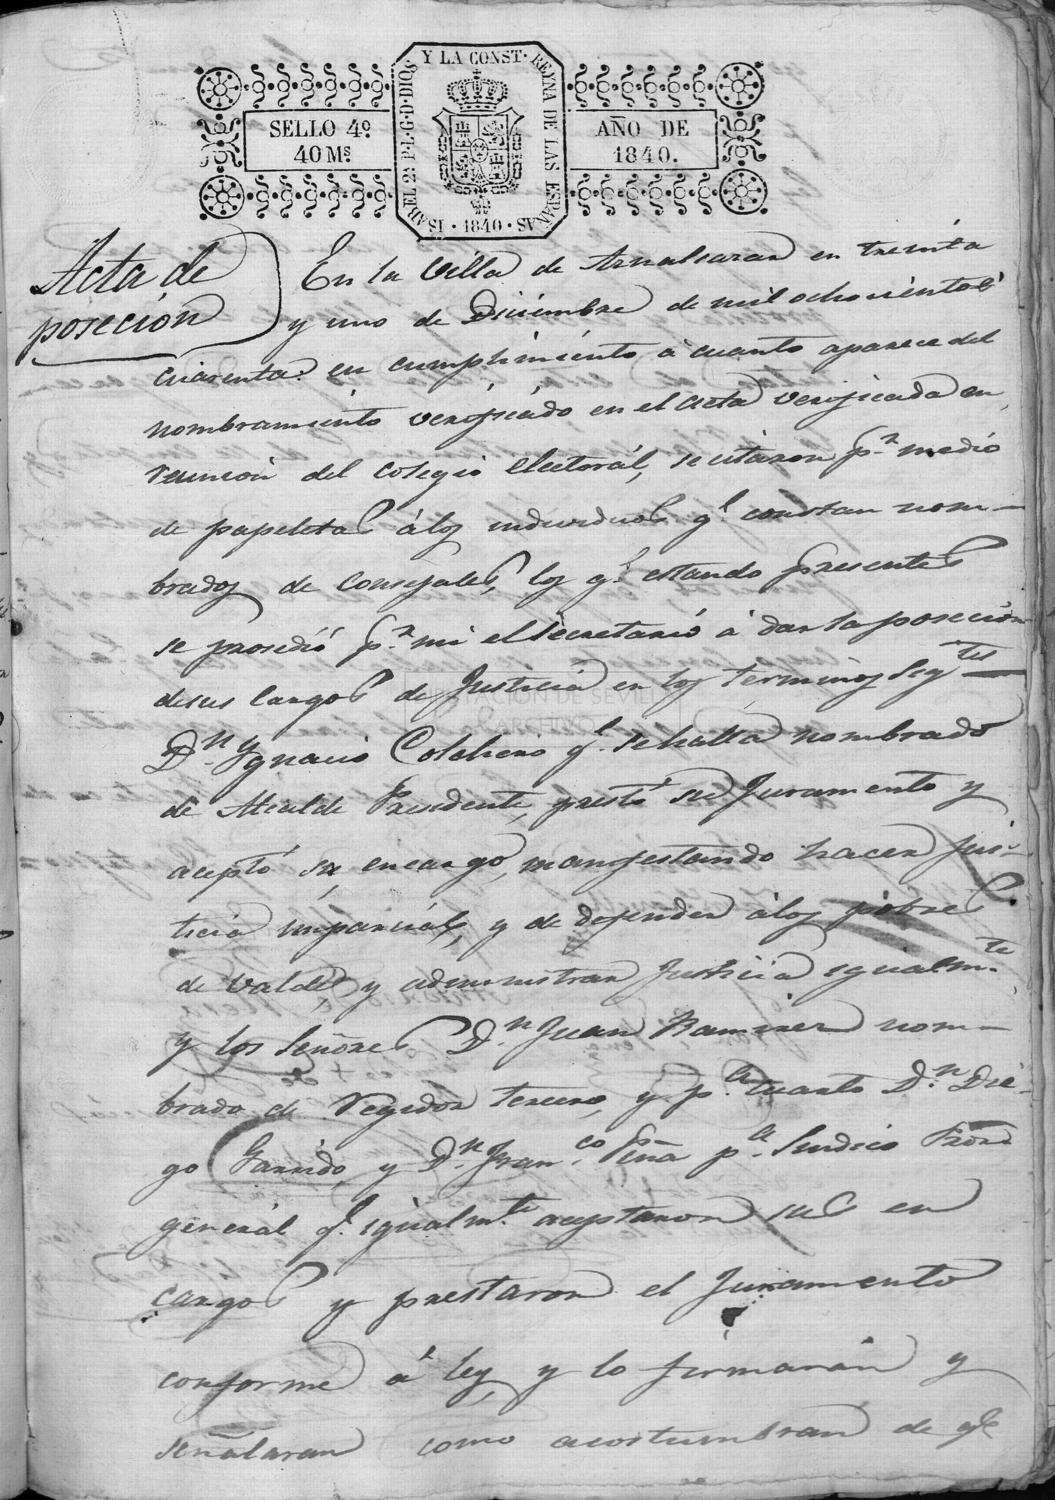 ISABEL 2ª P.L.G.D.DIOS Y LA CONST. REYNA DE LAS ESPAÑAS · 1840 ·
SELLO 4º
40 Ms
AÑO DE
1840.
Acta de
poseción
En la Villa de Aznalcazar en treinta
y uno de Diciembre de mil ochocientos
cuarenta: en cumplimiento à cuanto aparece del
nombramiento verificado en el acta verificada en
reunion del colegio electoral, se citaron pr. medio
de papeletas à los individuos qe. constan nom-
brados de Consejales, los qe. estando presentes
se prosedió pr. mi el Secretario à dar la poseción
de sus cargos de Justicia en los terminos Sigtes
Dn. Ygnacio Colchero qe. se halla nombrado
de Alcalde Presidente, prestó su Juramento y
aceptó su encargo, manifestando hacer jus-
ticia imparcial, y de defender à los pobres
de valde y administran Justicia igualmte.
y los Señores Dn. Juan Ramirez nom-
brado de Regidor tercero, y pa. cuarto Dn. Die-
go Garrido, y Dn. Franco. Peña pa. Sindico
general qe. igualmte. aceptaron sus en
cargos y prestaron el Juramento
conforme à ley, y lo firmarán y
señalaran como acostumbran de qe
DIPUTACIÓN DE SEVILLA
ARCHIVO